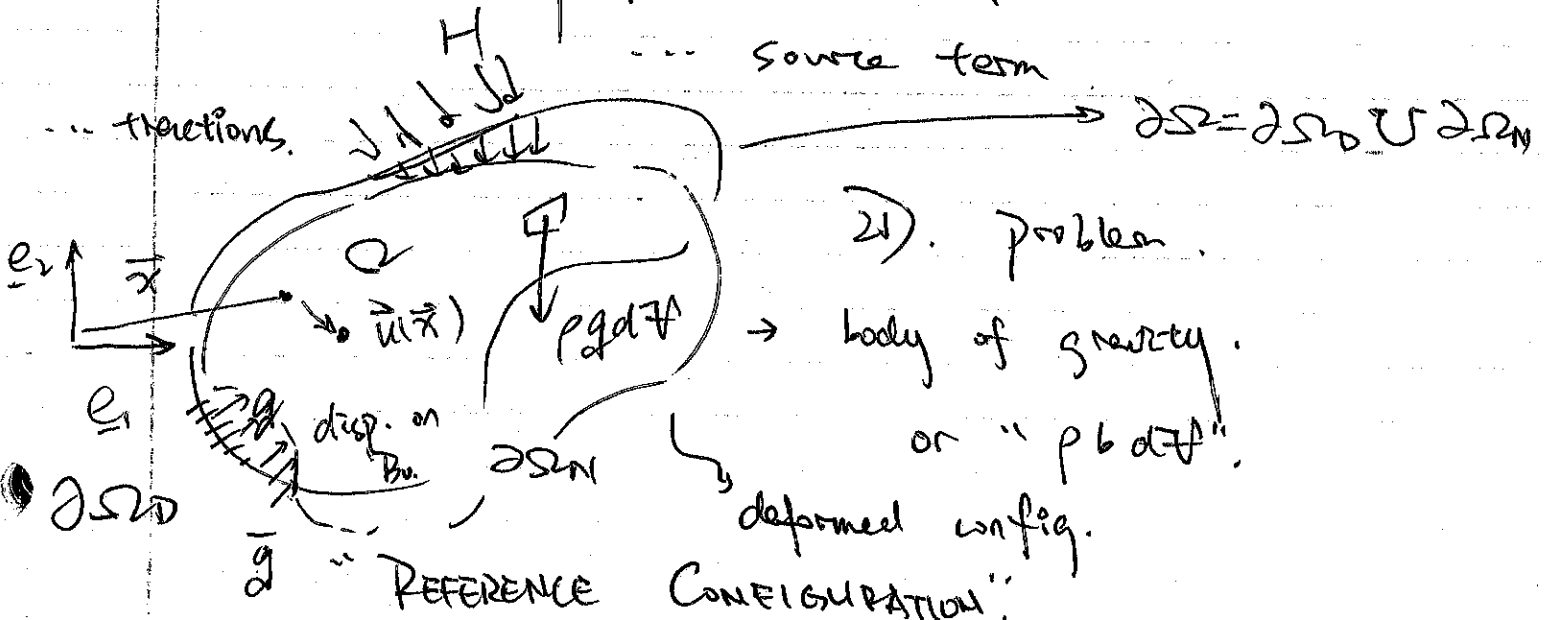 H
... source term
... tractions.
∂Ω = ∂Ω_D ∪ ∂Ω_N
2D. problem.
e₂
x⃗
Ω
u⃗(x⃗)
ρgdV
→ body of gravity.
e₁
g
disp. on
∂Ω_N
or "ρbdV".
∂Ω_D
deformed config.
g̅
"REFERENCE CONFIGURATION".